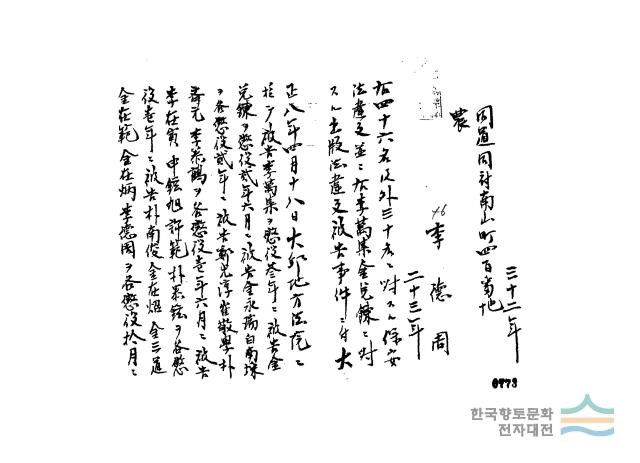 三十二年
同道同村南山町四百番地
農
46 李德周
二十三年
右四十六名及外三十名ニ対スル保安
法違反並ニ右李萬集金兌鍊ニ対
スル出版法違反被告事件ニ付大
正八年四月十八日大邱地方法院ニ
於テ被告李萬集ヲ懲役參年ニ被告金
兌鍊ヲ懲役貳年六月ニ被告金永瑞白南埰
ヲ各懲役貳年ニ被告鄭光淳崔敬學朴
元李泰鶴ヲ各懲役壱年六月ニ被告
李在寅申鉉旭許範朴泰鉉ヲ各懲
役壱年ニ被告朴南俊金在炤金三道
金在範金在炳李德周ヲ各懲役拾月ニ
0973
한국향토문화
전자대전